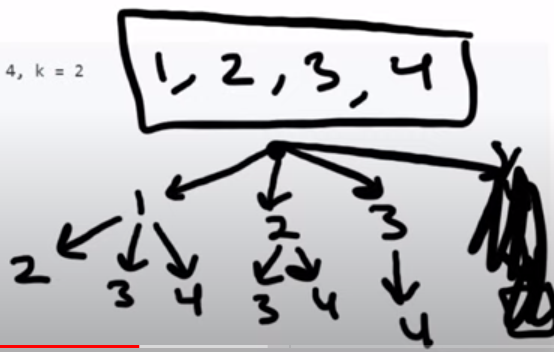 4, k = 2
1, 2, 3, 4
1 2 3
2 3 4 3 4 4